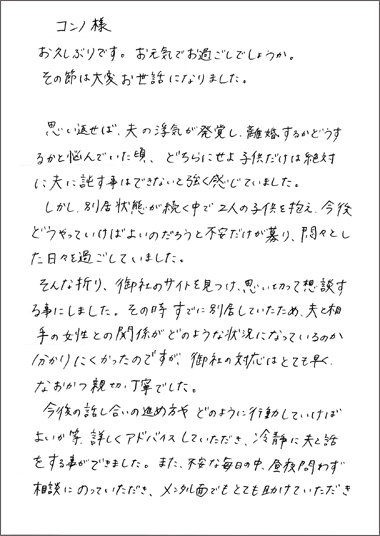 コンノ様
お久しぶりです。お元気でお過ごしでしょうか。
その節は大変お世話になりました。
思い返せば、夫の浮気が発覚し、離婚するかどうす
るかと悩んでいた頃、どちらにせよ子供だけは絶対
に夫に託す事はできないと強く感じていました。
しかし、別居状態が続く中で2人の子供を抱え、今後
どうやっていけばよいのだろうと不安だけが募り、悶々とし
た日々を過ごしていました。
そんな折り、御社のサイトを見つけ、思い切って想談す
る事にしました。その時すでに別居していたため、夫と相
手の女性との関係がどのような状況になっているのか
分かりにくかったのですが、御社の対応はとても早く、
なおかつ親切、丁寧でした。
今後の話し合いの進め方や どのように行動していけば
よいか等、詳しくアドバイスしていただき、冷静に夫と話
をする事ができました。また、不安な毎日の中、昼夜問わず
相談にのっていただき、メンタル面でもとても助けていただき